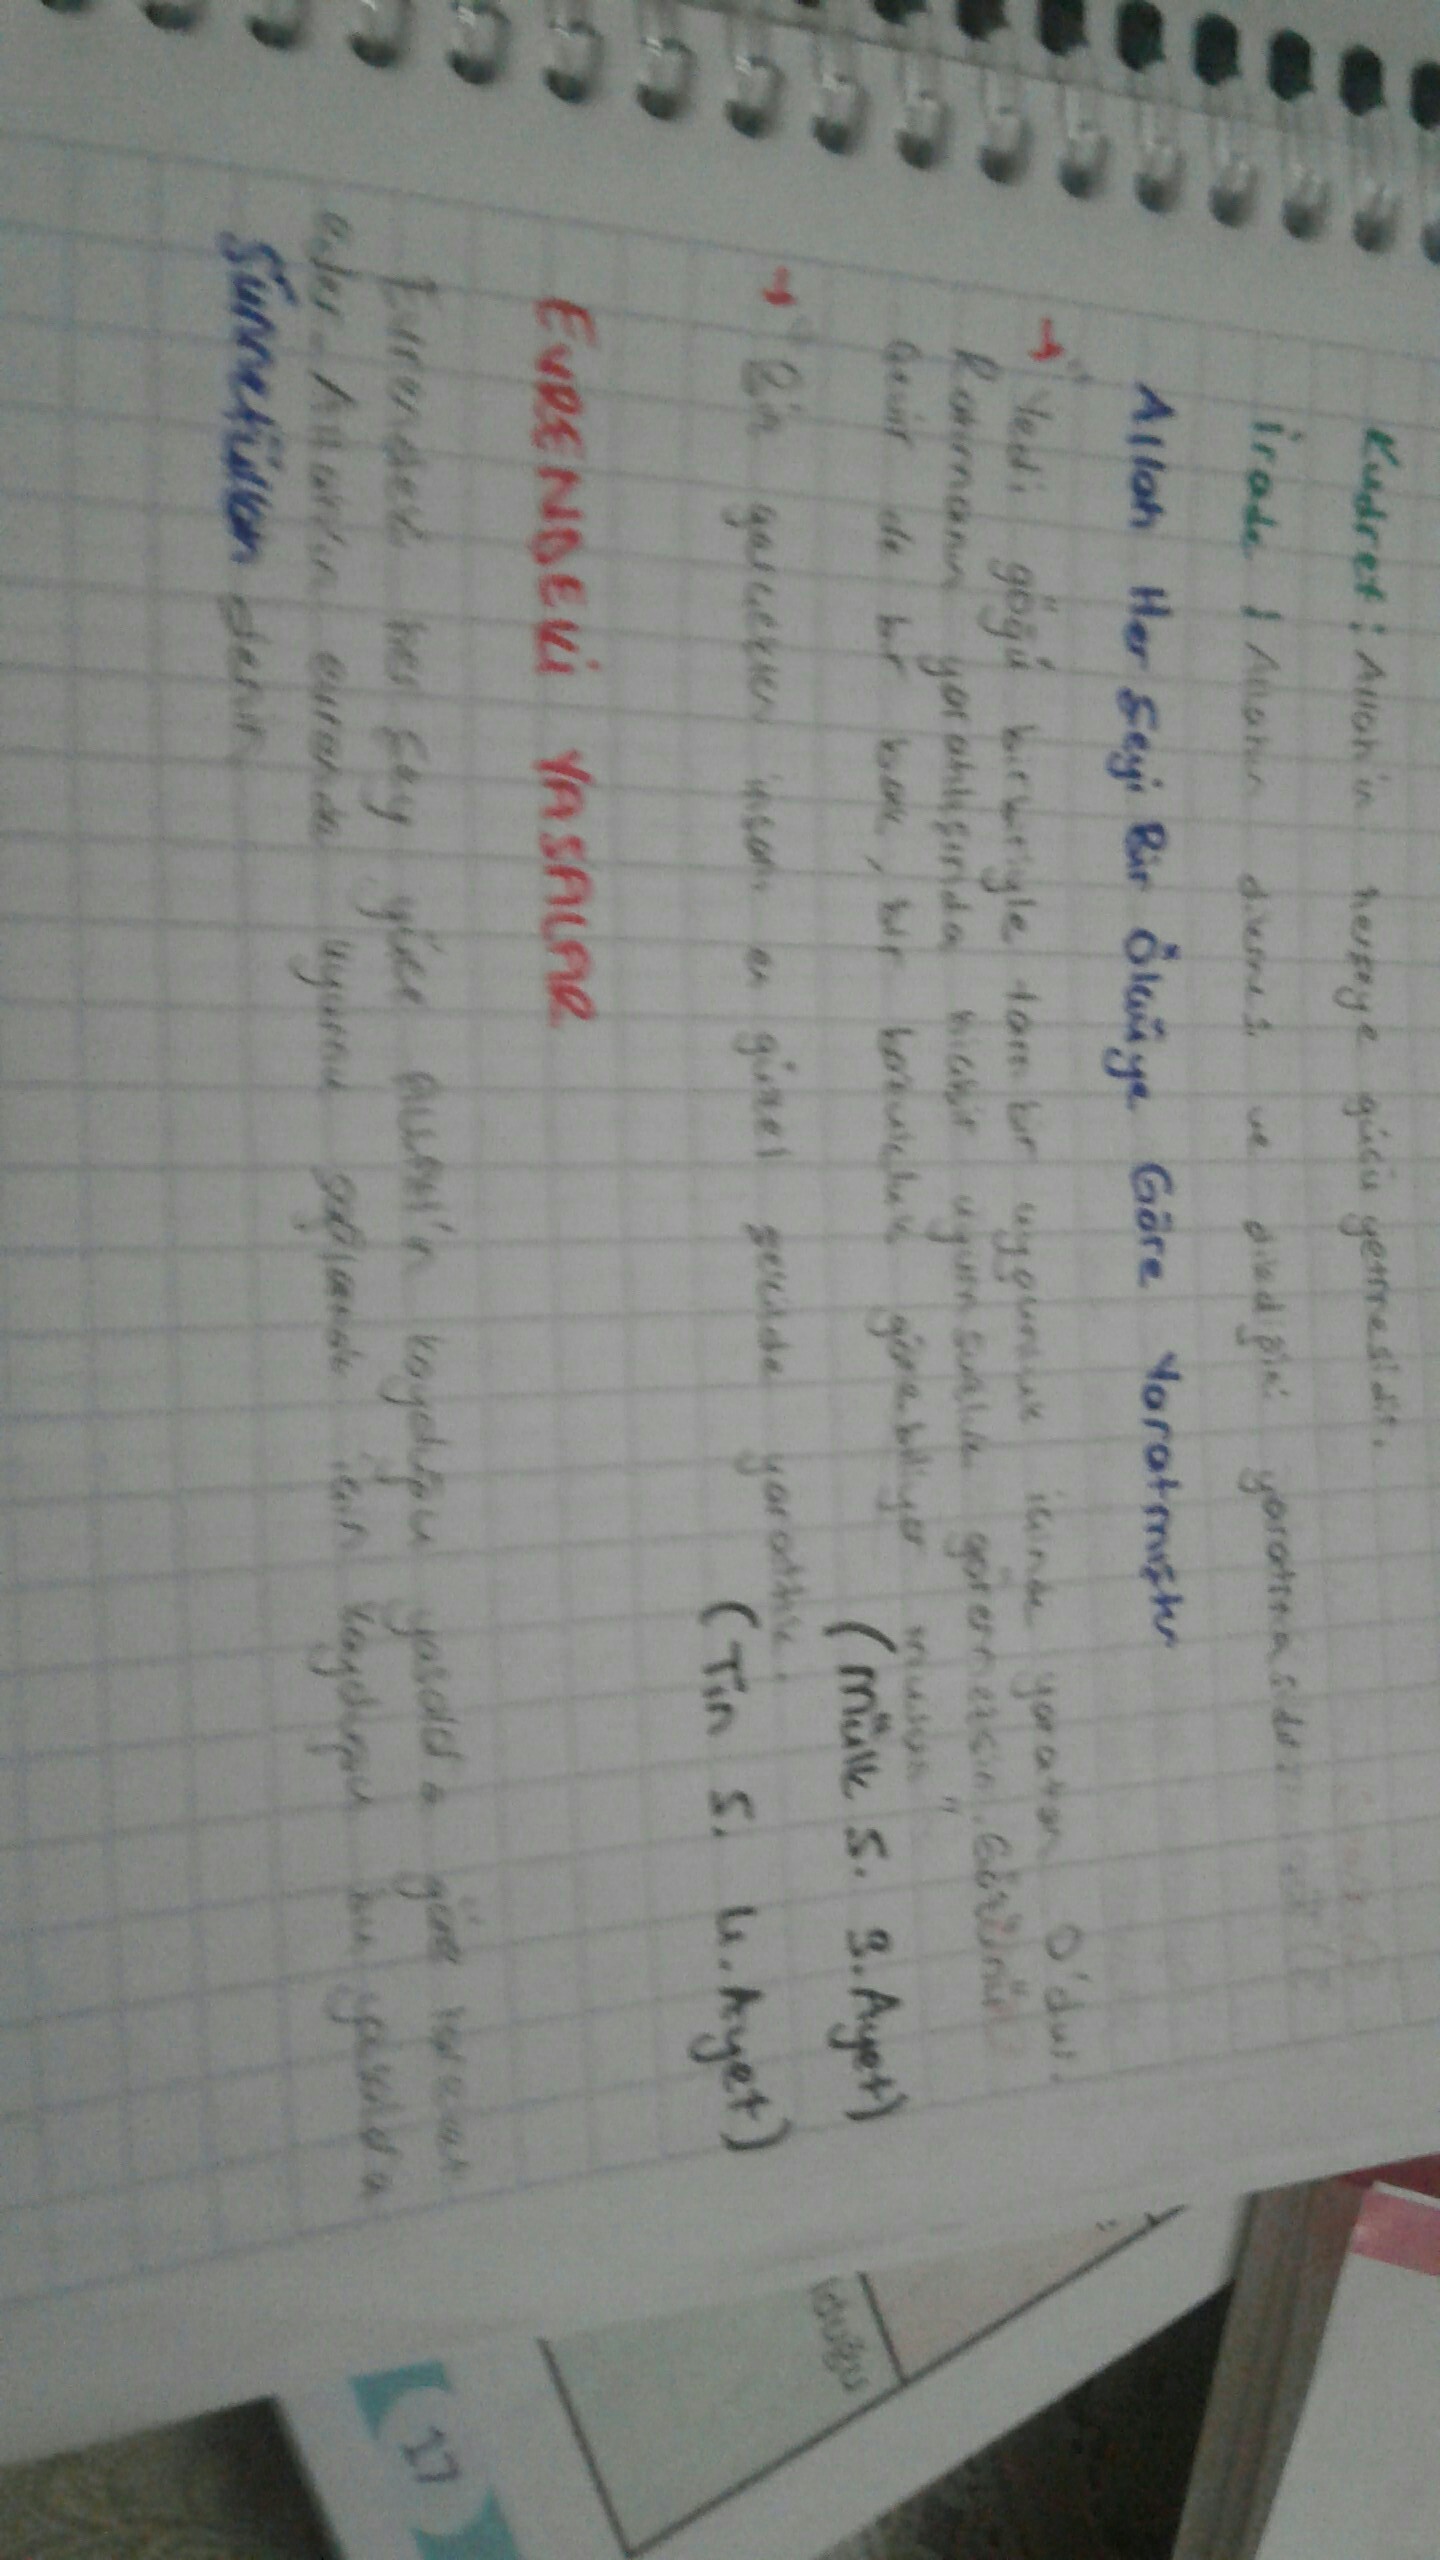 Kudret: Allah'ın herşeye gücü yetmesidir.
İrade: Allahın dilemesi ve dilediğini yaratmasıdır.
Allah Her Şeyi Bir Ölçüye Göre Yaratmıştır
→ "Yedi göğü birbiriyle tam bir uygunluk içinde yaratan O'dur.
Rahmanın yaratılışında hiçbir uyumsuzluk göremezsin. Gözünü
çevir de bir bak, bir bozukluk görebiliyor musun"
(Mülk S. 3. Ayet)
→ "Biz gerçekten insanı en güzel şekilde yarattık.
(Tin S. 4. Ayet)
EVRENDEKİ YASALAR
Evrendeki her şey yüce Allah'ın koyduğu yasalara göre hareket
eder. Allah'ın evrende uyumu sağlamak için koyduğu bu yasalara
Sünnetullah denir.
17